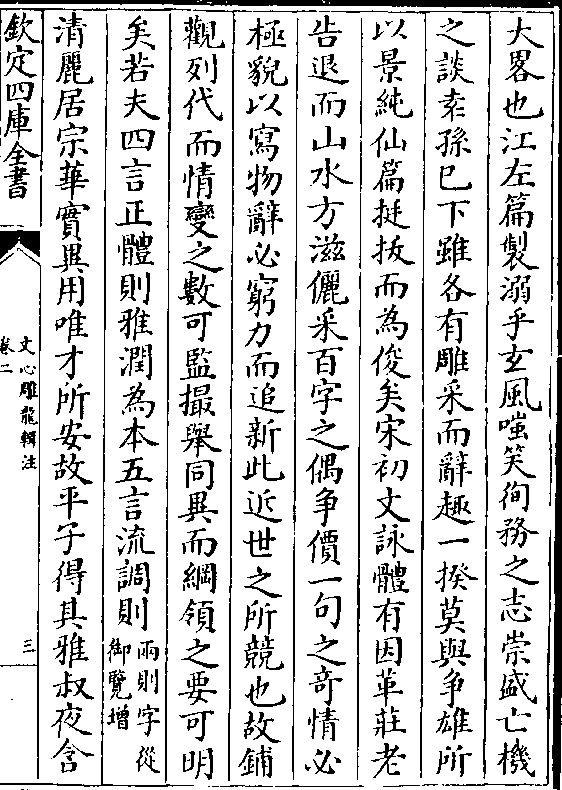 大畧也江左篇製溺乎𤣥風嗤笑徇務之志崇盛亡機
之談袁孫已下雖各有雕采而辭趣一揆莫與争雄所
以景純仙篇挺拔而為俊矣宋初文詠體有因革莊老
告退而山水方滋儷采百字之偶争價一句之竒情必
極貌以寫物辭必窮力而追新此近世之所競也故鋪
觀列代而情變之數可監撮舉同異而綱領之要可明
矣若夫四言正體則雅潤為本五言流調則兩則字從
御覽增
清麗居宗華實異用唯才所安故平子得其雅叔夜含
欽定四庫全書
文心雕龍輯注
卷二
三